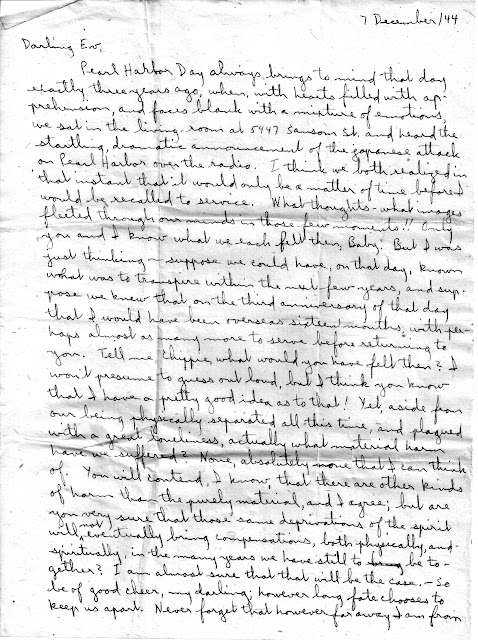 7 December/44
Darling Ev,
Pearl Harbor Day always brings to mind that day
exactly three years ago, when, with hearts filled with ap-
prehension, and faces blank with a mixture of emotions,
we sat in the living room at 5447 Sansom St. and heard the
startling, dramatic announcement of the japanese attack
on Pearl Harbor over the radio. I think we both realized in
that instant that it would only be a matter of time before I
would be recalled to service. What thoughts - what images
fleeted through our minds in those few moments!! Only
you and I know what we each felt then, Baby. But I was
just thinking - suppose we could have, on that day, known
what was to transpire within the next few years, and sup-
pose we knew that on the third anniversary of that day
that I would have been overseas sixteen months, with per-
haps almost as many more to serve before returning to
you. Tell me Chippie, what would you have felt then? I
won't presume to guess out loud, but I think you know
that I have a pretty good idea as to that! Yet, aside from
our being physically separated all this time, and plagued
with a great loneliness, actually what material harm
have we suffered? None, absolutely none that I can think
of. You will contend, I know, that there are other kinds
of harm than the purely material, and I agree; but are
you very sure that those same deprivations of the spirit
will not eventually bring compensations, both physically, and
spiritually, in the many years we have still to be to-
gether? I am almost sure that that will be the case. - So
be of good cheer, my darling; however long fate chooses to
keep us apart. Never forget that however far away I am from